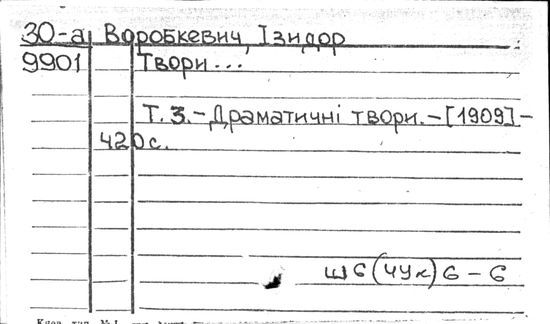 30-а Воробкевич, Ізидор
9901 Твори...
Т. 3.-Драматичні твори.-[1909]-
420с.
Ш6(4Ук)6-6
№1